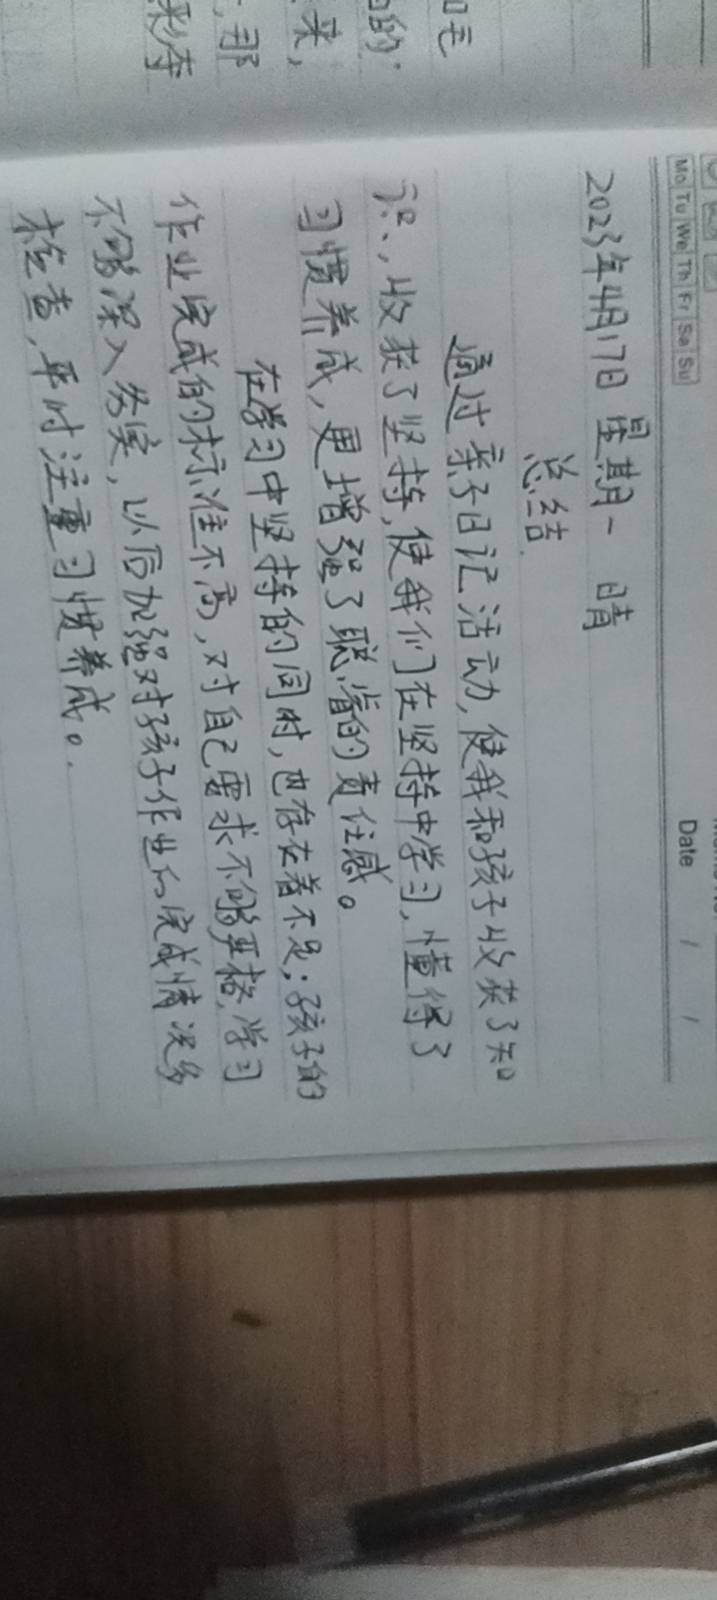 Mo Tu We Th Fr Sa Su
Date / /
2023年4月17日 星期一 晴
总结
通过亲子日记活动,使我和孩子收获了知
识,收获了坚持,使我们在坚持中学习,懂得了
习惯养成,更增强了的责任感。
在学习中坚持的同时,也存在着不足;孩子的
作业完成的标准不高,对自己要求不够严格,学习
不够深入务实,以后加强对孩子作业的完成情况多
检查,平时注重习惯养成。
的
来,
,那
彩夺